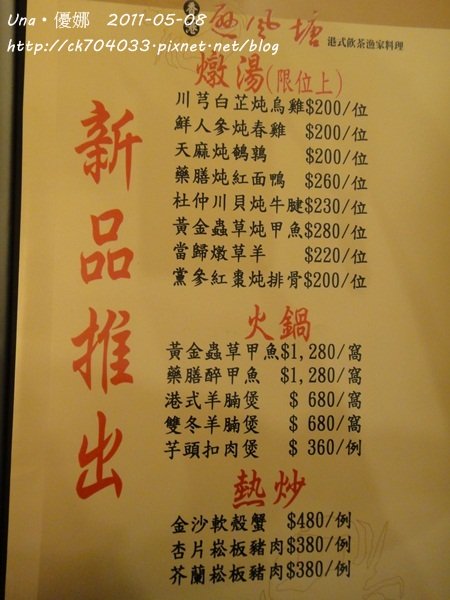 Una・優娜  2011-05-08
http://ck704033.pixnet.net/blog
香港
避風塘
港式飲茶漁家料理
新品推出
燉湯(限位上)
川芎白芷炖烏雞$200/位
鮮人參炖春雞 $200/位
天麻炖鵪鶉 $200/位
藥膳炖紅面鴨 $260/位
杜仲川貝炖牛腱$230/位
黃金蟲草炖甲魚$280/位
當歸燉草羊 $220/位
黨參紅棗炖排骨$200/位
火鍋
黃金蟲草甲魚$1,280/窩
藥膳醉甲魚 $1,280/窩
港式羊腩煲 $ 680/窩
雙冬羊腩煲 $ 680/窩
芋頭扣肉煲 $ 360/例
熱炒
金沙軟殼蟹 $480/例
杏片崧板豬肉$380/例
芥蘭崧板豬肉$380/例